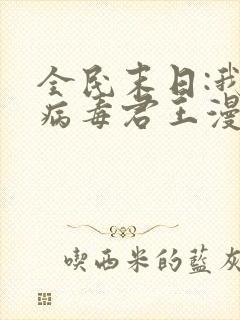 全民末日:我
病毒君王漫
喫西米的藍灰